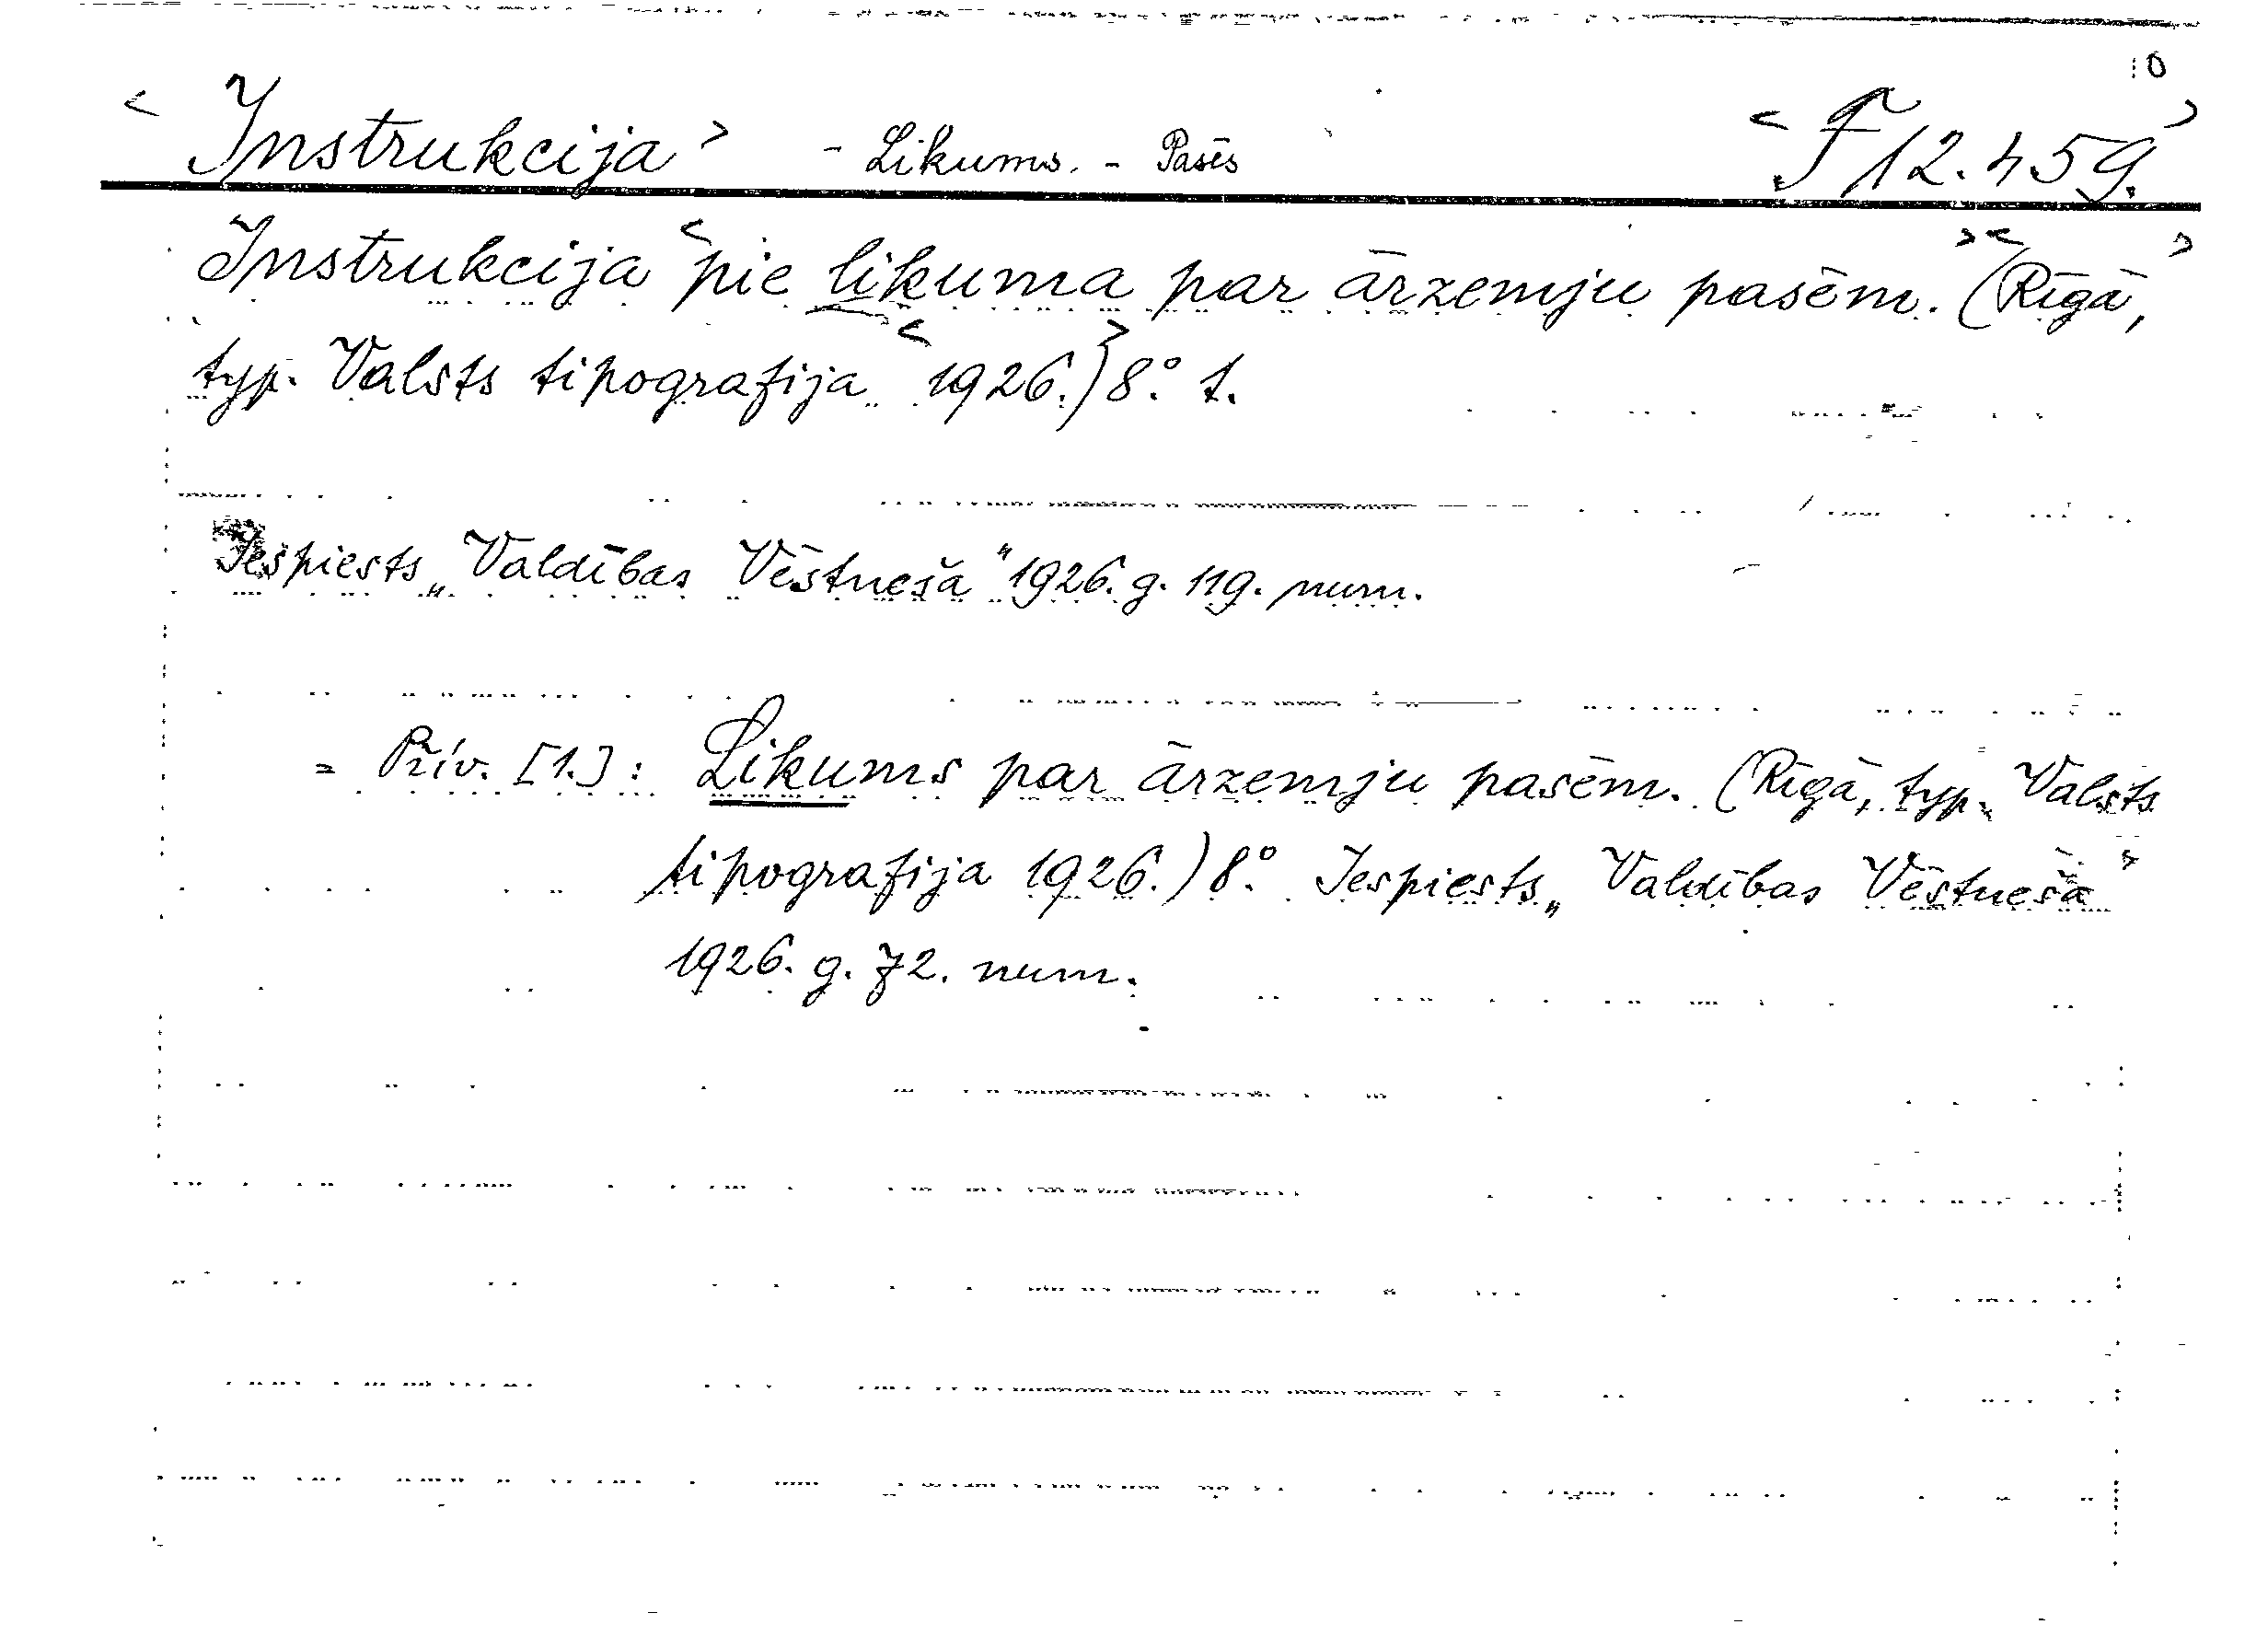 0
< Instrukcija > - Likums. - Pasēs < F 12.459. >
Instrukcija < pie likuma par ārzemju pasēm. > < (Rīgā, >
typ. Valsts tipografija < 1926. > ) 8.° 1.
Iespiests „Valdības Vēstneša" 1926. g. 119. num.
= Přív. [1.] : Likums par ārzemju pasēm. (Rīgā, typ. Valsts
tipografija 1926.) 8.° Iespiests „Valdības Vēstneša"
1926. g. 72. num.